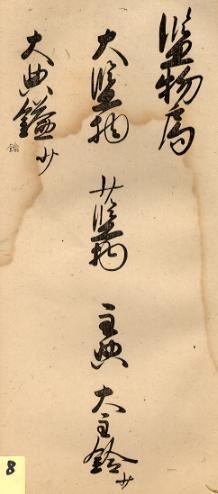 監物
大監物 少監物 主典 大主鈴 少
大典鎰 少
8